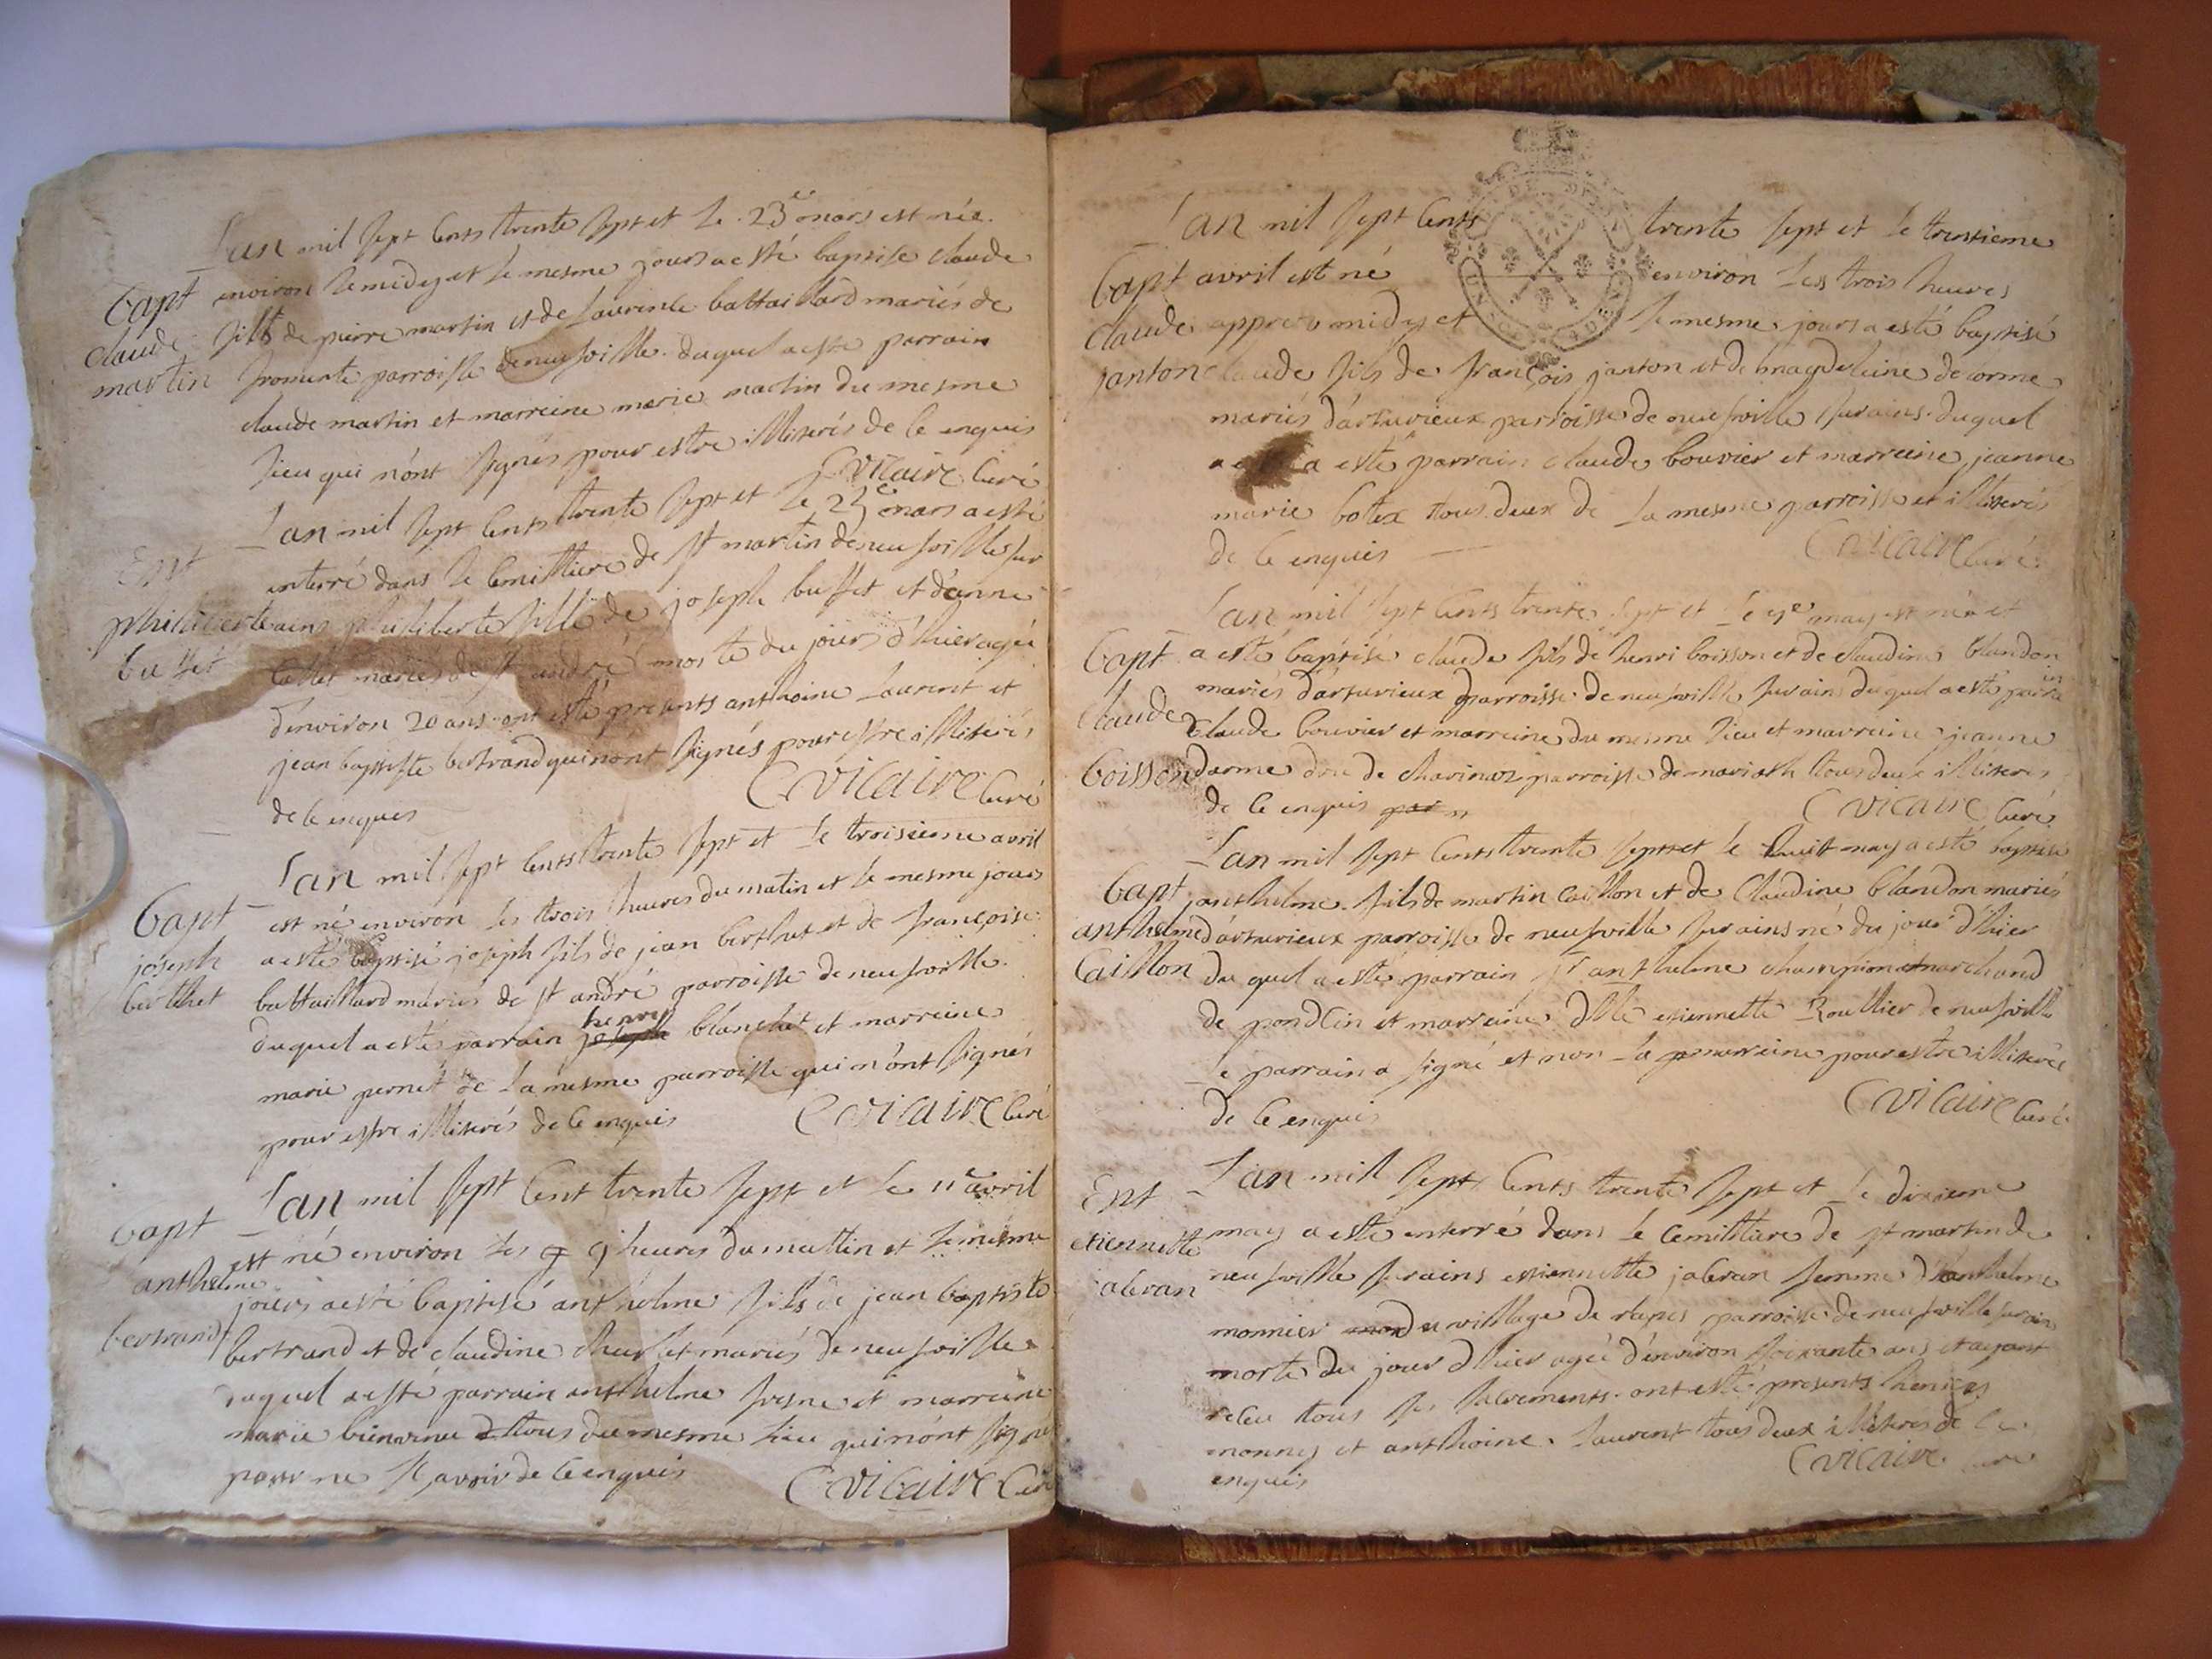 Lan mil sept cents trente sept et le 23e mars est née
environ le midy et le mesme jours a esté baptise claude
fils de pierre martin et de Laurence battaillard mariés de
fromente parroisse de neufville duquel a esté parrain
claude martin et marreine marie martin du mesme
lieu qui n'ont signés pour estre illiterés de ce enquis
Cvicaire curé
Bapt
claude
martin
Lan mil sept cents trente sept et le mars a esté
enterré dans le cemittiere de st martin de neufville sur
ains philiberte fille de joseph buffet et d'anne
mariés de st andré morte du jours d'hier agée
d'environ 20 ans ont esté presents anthoine Laurent et
jean baptiste bertrand qui n'ont signés pour estre illiterés
de ce enquis
Cvicaire curé
Ent
philiberte
buffet
Lan mil sept cents trente sept et le troisieme avril
est né environ les trois heures du matin et le mesme jours
a esté baptisé joseph fils de jean berthet et de françoise
battaillard mariés de st andré parroisse de neufville
duquel a esté parrain henry blanchet et marreine
marie pernet de la mesme parroisse qui n'ont signés
pour estre illiterés de ce enquis
Cvicaire curé
Bapt
joseph
berthet
Lan mil sept cent trente sept et le 11e avril
est né environ les 9 heures du mattin et le mesme
jours a esté baptisé anthelme fils de jean baptiste
bertrand et de claudine mariés de neufville
duquel a esté parrain anthelme fresne et marreine
marie bienvenu tous du mesme lieu qui n'ont signés
pour ne sçavoir de ce enquis
Cvicaire curé
Bapt
anthelme
bertrand
Lan mil sept cents trente sept et le trentieme
avril est né environ les trois heures
appres midy et le mesme jours a esté baptisé
claude fils de françois janton et de magdeleine decorme
mariés d'arturieux parroisse de neufville surains duquel
a esté parrain claude bouvier et marreine jeanne
marie botex tous deux de la mesme parroisse et illiterés
de ce enquis
Cvicaire curé
Bapt
claude
janton
Lan mil sept cents trente sept et le may est né et
a esté baptisé claude fils de henri boisson et de claudine blandon
mariés d'arturieux parroisse de neufville surains duquel a esté parrain
claude bouvier et marreine du mesme lieu et marreine jeanne
de charinaz parroisse de tous deux illiterés
de ce enquis par
Cvicaire curé
Bapt
claude
boisson
Lan mil sept cents trente sept et le huit may a esté baptisé
anthelme fils de martin caillon et de Claudine blandon mariés
d'arturieux parroisse de neufville surains né du jour d'hier
du quel a esté parrain sr anthelme champion marchand
de pondcin et marreine dlle etiennette Roullier de neufville
le parrain a signé et non la marreine pour estre illiterée
de ce enquis
Cvicaire curé
Bapt
anthelme
Caillon
Lan mil sept cents trente sept et le dixieme
may a esté enterré dans le cemittiere de st martin de
neufville surains etiennette jabran femme d'anthelme
monnier du village de rapes parroisse de neufville surains
morte du jour d'hier agée d'environ soixante ans et ayant
receu tous ses sacrements ont esté presents
monney et anthoine Laurent tous deux illiterés de ce
enquis
Cvicaire curé
Ent
etiennette
jabran